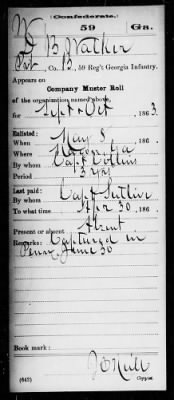 W
(Confederate.)
59 Ga.
D B Walker
Pvt Co. B, 59 Reg't Georgia Infantry.
Appears on
Company Muster Roll
of the organization named above,
for Sept & Oct , 186 3.
Enlisted:
When May 8 , 186 .
Where Macon Ga
By whom Capt Collins
Period 3 yrs
Last paid:
By whom Capt
To what time Apr 30 , 186 .
Present or absent Absent
Remarks: Captured in
Penn June 30
Book mark:
(642)
Copyist.